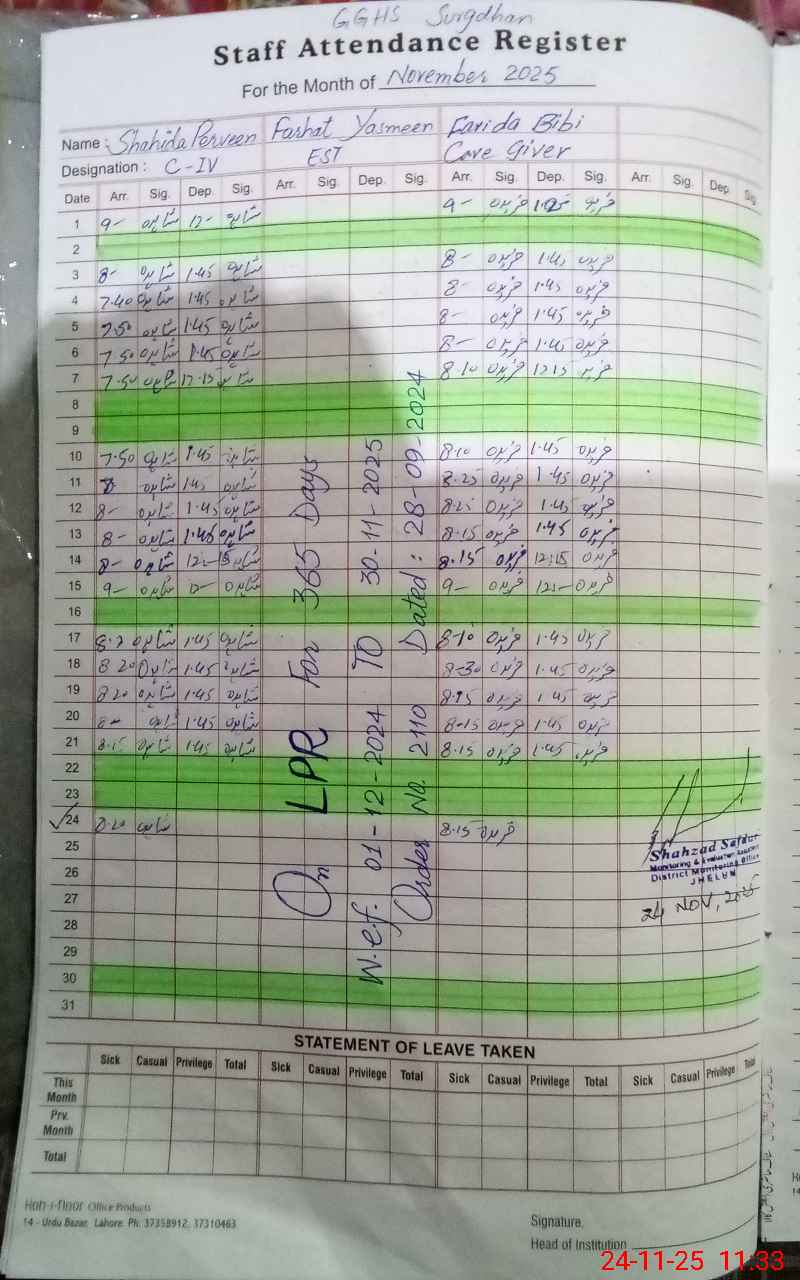 GGHS Surgdhan
Staff Attendance Register
For the Month of November 2025
Name : Shahida Perveen Farhat Yasmeen Farida Bibi
Designation : C-IV EST Care Giver
Date Arr. Sig. Dep. Sig. Arr. Sig. Dep. Sig. Arr. Sig. Dep. Sig. Arr. Sig. Dep. Sig
1 9- شاہدہ 12- شاہدہ 9- فریدہ فریدہ
2
3 8- شاہدہ 1.45 شاہدہ 8- فریدہ 1.45 فریدہ
4 7.40 شاہدہ 1.45 شاہدہ 8- فریدہ 1.45 فریدہ
5 7.50 شاہدہ 1.45 شاہدہ 8- فریدہ 1.45 فریدہ
6 7.50 شاہدہ 1.45 شاہدہ 8- فریدہ 1.45 فریدہ
7 7.50 شاہدہ 12.15 شاہدہ 8.10 فریدہ 12.15 فریدہ
8
9
10 7.50 شاہدہ 1.45 شاہدہ 8.10 فریدہ 1.45 فریدہ
11 8 شاہدہ 1.45 شاہدہ 8.25 فریدہ 1.45 فریدہ
12 8- شاہدہ 1.45 شاہدہ 8.25 فریدہ 1.45 فریدہ
13 8- شاہدہ 1.45 شاہدہ 8.15 فریدہ 1.45 فریدہ
14 8- شاہدہ 12:15 شاہدہ 8.15 فریدہ 12:15 فریدہ
15 9- شاہدہ 12- شاہدہ 9- فریدہ 12:- فریدہ
16
17 8.20 شاہدہ 1.45 شاہدہ 8-10 فریدہ 1.45 فریدہ
18 8 20 شاہدہ 1.45 شاہدہ 8-30 فریدہ 1.45 فریدہ
19 8.20 شاہدہ 1.45 شاہدہ 8.15 فریدہ 1.45 فریدہ
20 شاہدہ 1.45 شاہدہ 8-15 فریدہ 1.45 فریدہ
21 8.15 شاہدہ 1.45 شاہدہ 8.15 فریدہ 1.45 فریدہ
22
23
24 8.20 شاہدہ 8.15 فریدہ
25
26
27
28
29
30
31
On LPR For 365 Days
W.e.f. 01-12-2024 TO 30-11-2025
Order No. 2110 Dated: 28-09-2024
Shahzad Safdar
Monitoring & Evaluation Assistant
District Monitoring Office
JHELUM
24 NOV, 2025
STATEMENT OF LEAVE TAKEN
Sick Casual Privilege Total Sick Casual Privilege Total Sick Casual Privilege Total Sick Casual Privilege Total
This Month
Prv. Month
Total
Koh-i-Noor Office Products
14 - Urdu Bazar, Lahore. Ph: 37358912, 37310463
Signature.
Head of Institution
24-11-25 11:33